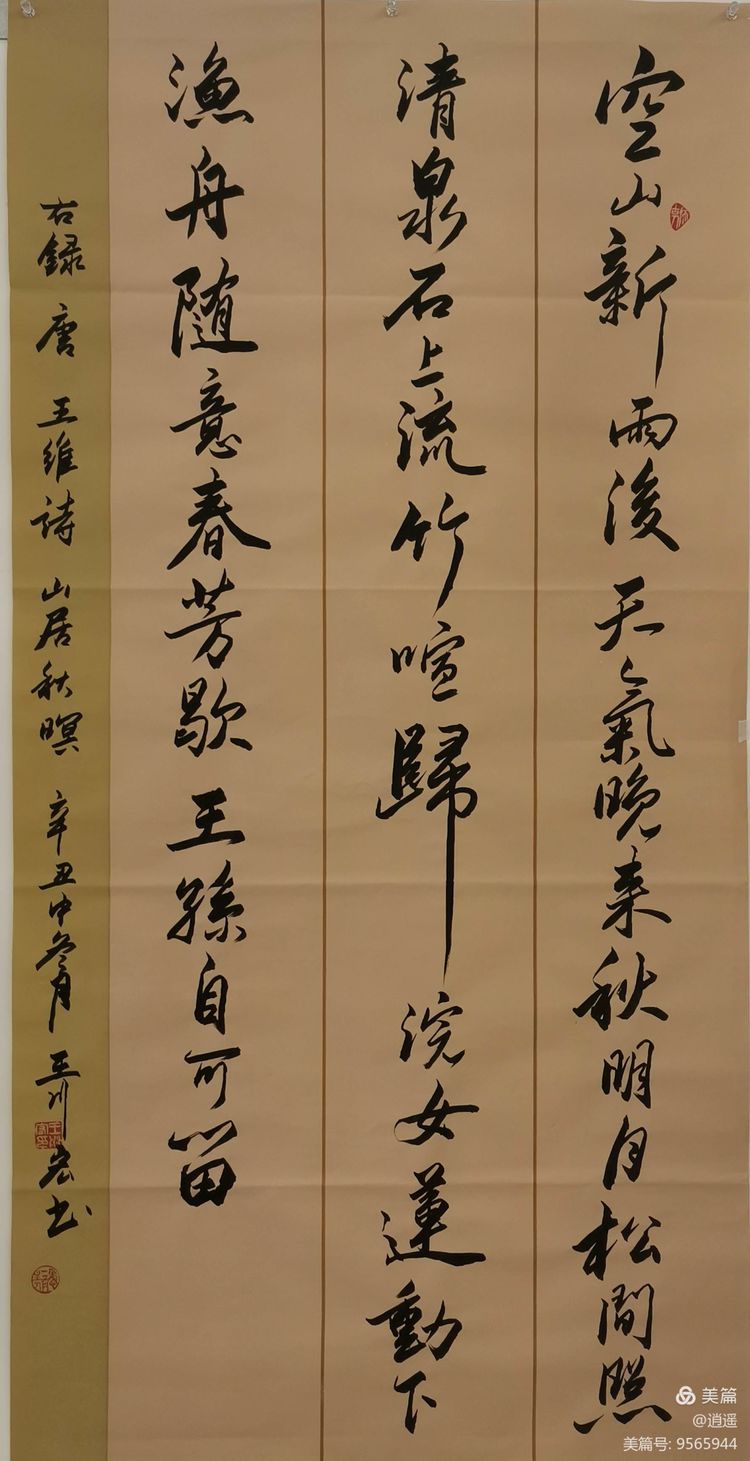 空山新雨後天氣晚来秋明月松間照
清泉石上流竹喧歸浣女蓮動下
渔舟随意春芳歇王孫自可留
右録唐王維詩山居秋暝辛丑中冬月王川宏书
美篇
@逍遥
美篇号: 9565944